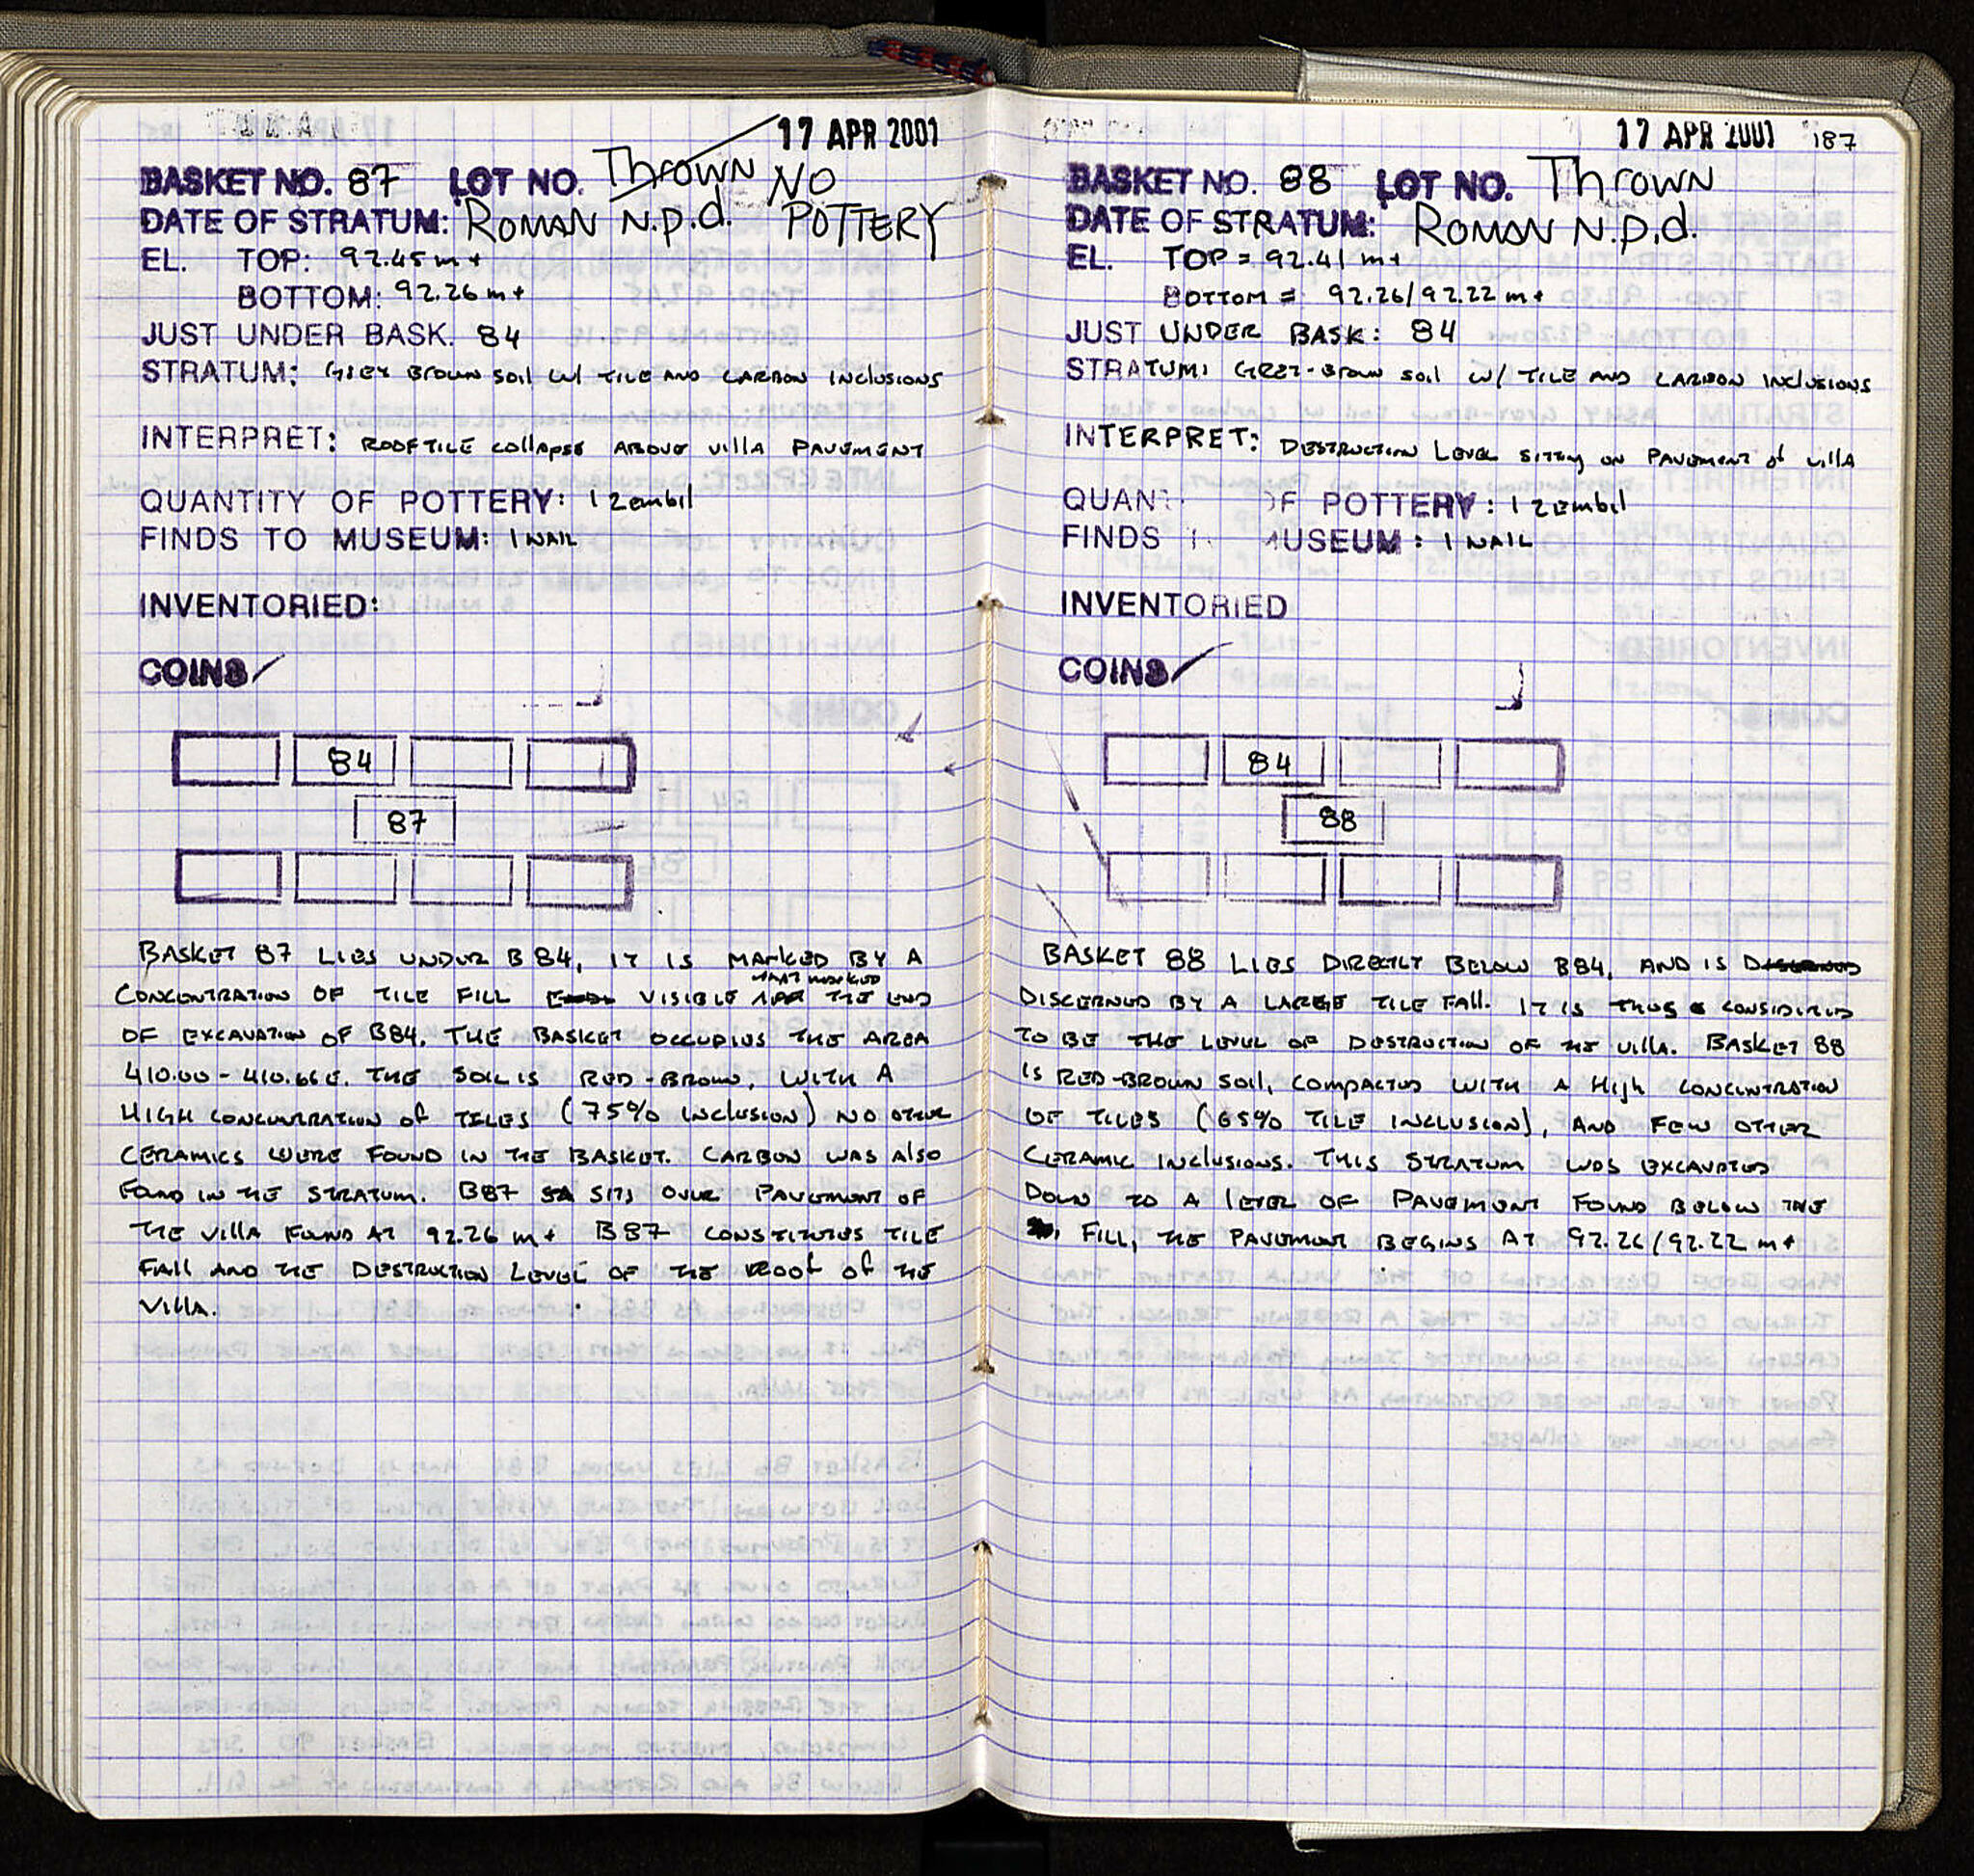 17 APR 2001
BASKET NO. 87 LOT NO. Thrown NO
DATE OF STRATUM: ROMAN N.p.d. POTTERY
EL. TOP: 92.45 m+
BOTTOM: 92.26 m+
JUST UNDER BASK. 84
STRATUM: GREY BROWN SOIL W/ TILE AND CARBON INCLUSIONS
INTERPRET: ROOFTILE COllAPSE ABOVE VILLA PAVEMENT
QUANTITY OF POTTERY: 1 zembil
FINDS TO MUSEUM: 1 NAIL
INVENTORIED:
COINS
84
87
BASKET 87 LIES UNDER B84, IT IS MARKED BY A
THAT MARKED
CONCENTRATION OF TILE FILL VISIBLE THE END
OF EXCAVATION OF B84. THE BASKET OCCUPIES THE AREA
410.00 - 410.66 E. THE SOIL IS RED-BROWN, WITH A
HIGH CONCENTRATION of TILES (75% INCLUSION) NO OTHER
CERAMICS WERE FOUND IN THE BASKET. CARBON WAS AlSO
FOUND IN THE STRATUM. B87 SITS OVER PAVEMENT OF
THE VILLA FOUND AT 92.26 m+ B87 CONSTITUTES TILE
FAll AND THE DESTRUCTION LEVEL OF THE ROOF OF THE
VILLA.
17 APR 2001 187
BASKET NO. 88 LOT NO. Thrown
DATE OF STRATUM: ROMAN N.p.d.
EL. TOP = 92.41 m+
BOTTOM = 92.26/92.22 m+
JUST UNDER BASK: 84
STRATUM: GREY-BROWN SOIL W/ TILE AND CARBON INCLUSIONS
INTERPRET: DESTRUCTION LEVEL SITTING ON PAVEMENT of VILLA
QUANT OF POTTERY: 1 zembil
FINDS MUSEUM: 1 NAIL
INVENTORIED
COINS
84
88
BASKET 88 LIES DIRECTLY BELOW B84, AND IS
DISCERNED BY A LARGE TILE FALL. IT IS THUS CONSIDERED
TO BE THE LEVEL OF DESTRUCTION OF THE VILLA. BASKET 88
IS RED-BROWN SOIL, COMPACTED WITH A HIGH CONCENTRATION
OF TILES (65% TILE INCLUSION), AND FEW OTHER
CERAMIC INCLUSIONS. THIS STRATUM WAS EXCAVATED
DOWN TO A LEVEL OF PAVEMENT FOUND BELOW THE
FILL, THE PAVEMENT BEGINS AT 92.26/92.22 m+